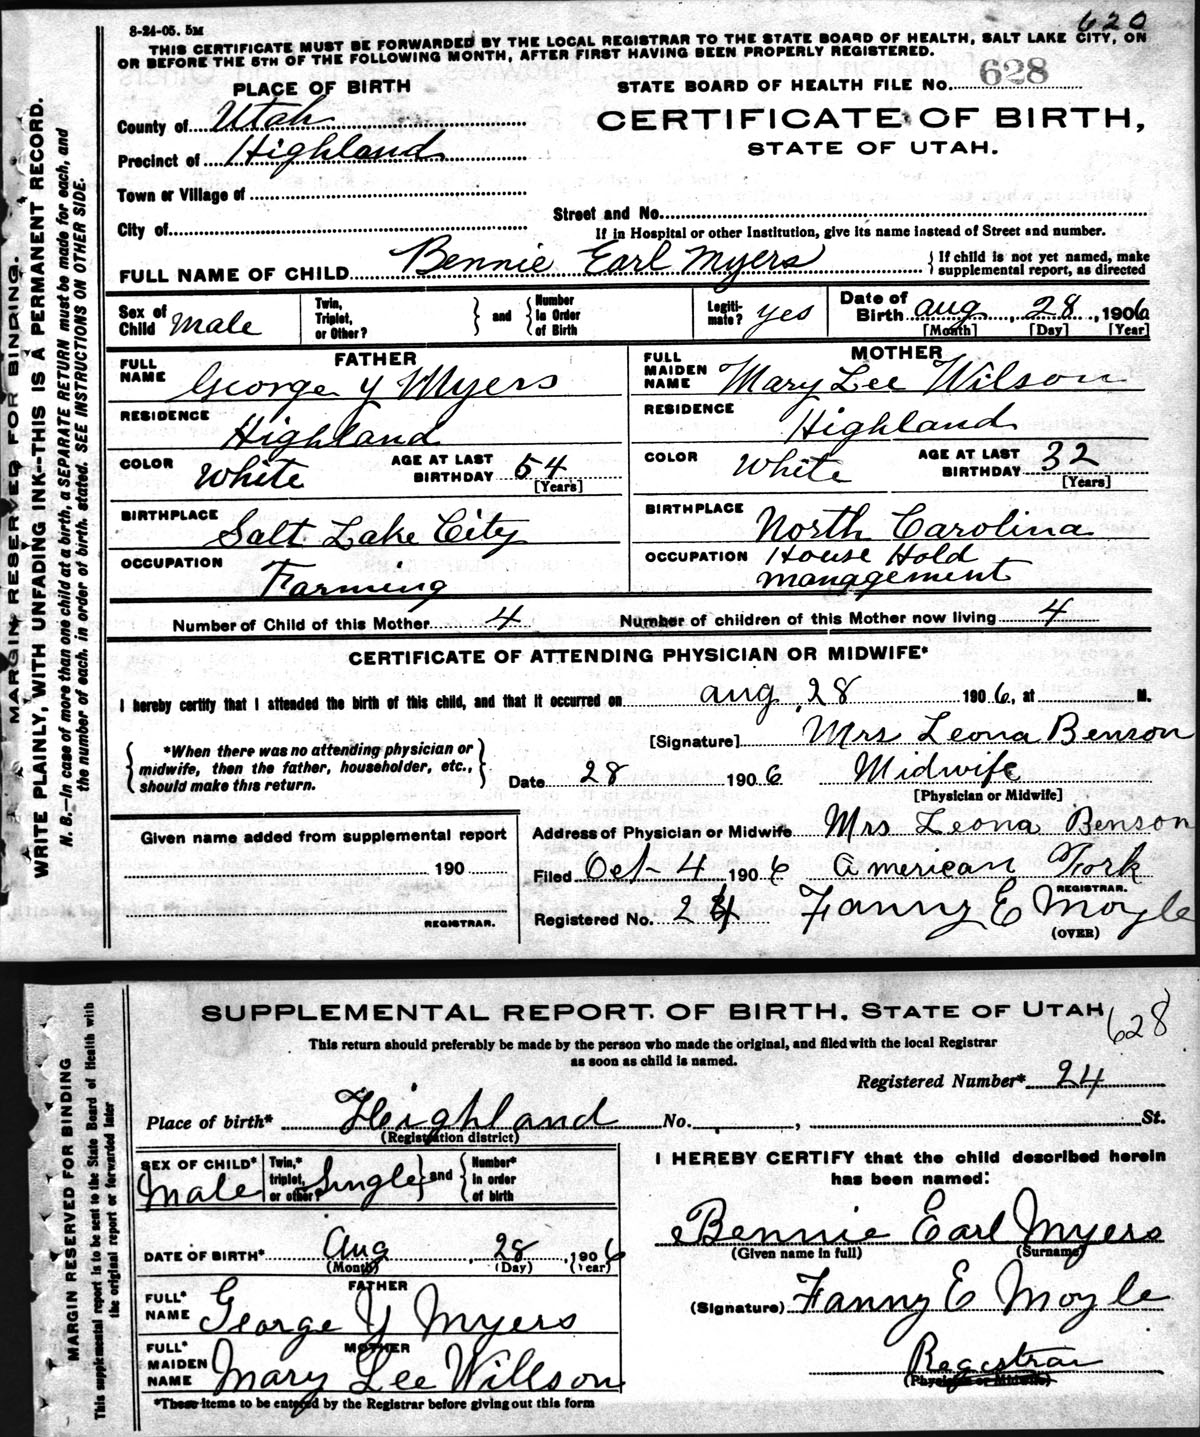 620
8-24-05. 5M
THIS CERTIFICATE MUST BE FORWARDED BY THE LOCAL REGISTRAR TO THE STATE BOARD OF HEALTH, SALT LAKE CITY, ON
OR BEFORE THE 5TH OF THE FOLLOWING MONTH, AFTER FIRST HAVING BEEN PROPERLY REGISTERED.
MARGIN RESERVED FOR BINDING.
WRITE PLAINLY, WITH UNFADING INK--THIS IS A PERMANENT RECORD.
N. B.--In case of more than one child at a birth, a SEPARATE RETURN must be made for each, and
the number of each, in order of birth, stated. SEE INSTRUCTIONS ON OTHER SIDE.
PLACE OF BIRTH
STATE BOARD OF HEALTH FILE NO. 628
County of Utah
CERTIFICATE OF BIRTH,
Precinct of Highland
STATE OF UTAH.
Town or Village of
Street and No.
City of
If in Hospital or other Institution, give its name instead of Street and number.
FULL NAME OF CHILD Bennie Earl Myers { If child is not yet named, make
supplemental report, as directed
Sex of
Child Male
Twin,
Triplet,
or Other?
} and {
Number
in Order
of Birth
Legiti-
mate? yes
Date of
Birth Aug, 28, 1906
[Month] [Day] [Year]
FATHER
FULL
NAME George Y Myers
RESIDENCE
Highland
COLOR White AGE AT LAST
BIRTHDAY 54
[Years]
BIRTHPLACE
Salt Lake City
OCCUPATION
Farming
MOTHER
FULL
MAIDEN
NAME Mary Lee Wilson
RESIDENCE
Highland
COLOR White AGE AT LAST
BIRTHDAY 32
[Years]
BIRTHPLACE
North Carolina
OCCUPATION House Hold
management
Number of Child of this Mother 4 Number of children of this Mother now living 4
CERTIFICATE OF ATTENDING PHYSICIAN OR MIDWIFE*
I hereby certify that I attended the birth of this child, and that it occurred on Aug, 28 1906, at M.
{ *When there was no attending physician or
midwife, then the father, householder, etc.,
should make this return. }
[Signature] Mrs Leona Benson
Date 28 1906 Midwife
[Physician or Midwife]
Given name added from supplemental report
190
REGISTRAR.
Address of Physician or Midwife Mrs Leona Benson
Filed Oct-4 1906 American Fork
REGISTRAR.
Registered No. 24 Fanny E Moyle
(OVER)
MARGIN RESERVED FOR BINDING
This supplemental report is to be sent to the State Board of Health with
the original report or forwarded later
SUPPLEMENTAL REPORT. OF BIRTH, STATE OF UTAH
628
This return should preferably be made by the person who made the original, and filed with the local Registrar
as soon as child is named.
Registered Number* 24
Place of birth* Highland No. , St.
(Registration district)
SEX OF CHILD*
Male
Twin,*
triplet,
or other? Single
} and {
Number*
in order
of birth
DATE OF BIRTH* Aug, 28, 1906
(Month) (Day) (Year)
FATHER
FULL*
NAME George Y Myers
MOTHER
FULL*
MAIDEN
NAME Mary Lee Willson
*These items to be entered by the Registrar before giving out this form
I HEREBY CERTIFY that the child described herein
has been named:
Bennie Earl Myers
(Given name in full) (Surname)
(Signature) Fanny E Moyle
Registrar
(Physician or Midwife)